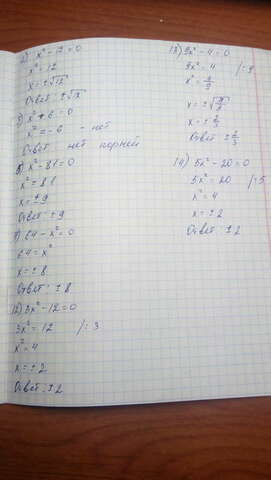 2) x² - 12 = 0
x² = 12
x = ±√12
Ответ ±√12
3) x² + 6 = 0
x² = -6 - нет
Ответ нет корней
5) x² - 81 = 0
x² = 81
x = ± 9
Ответ ± 9
7) 64 - x² = 0
64 = x²
x = ± 8
Ответ: ± 8
12) 3x² - 12 = 0
3x² = 12 /: 3
x² = 4
x = ± 2
Ответ: ± 2
13) 9x² - 4 = 0
9x² = 4 /: 9
x² = 4/9
x = ±√4/9
x = ± 2/3
Ответ ± 2/3
14) 5x² - 20 = 0
5x² = 20 /: 5
x² = 4
x = ± 2
Ответ ± 2